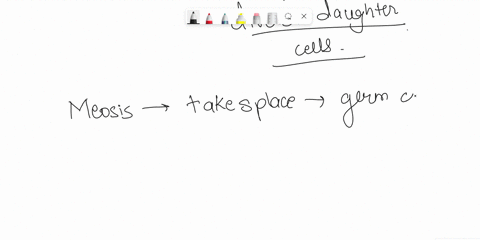 daughter
cells.
Meosis → takes place → germ c